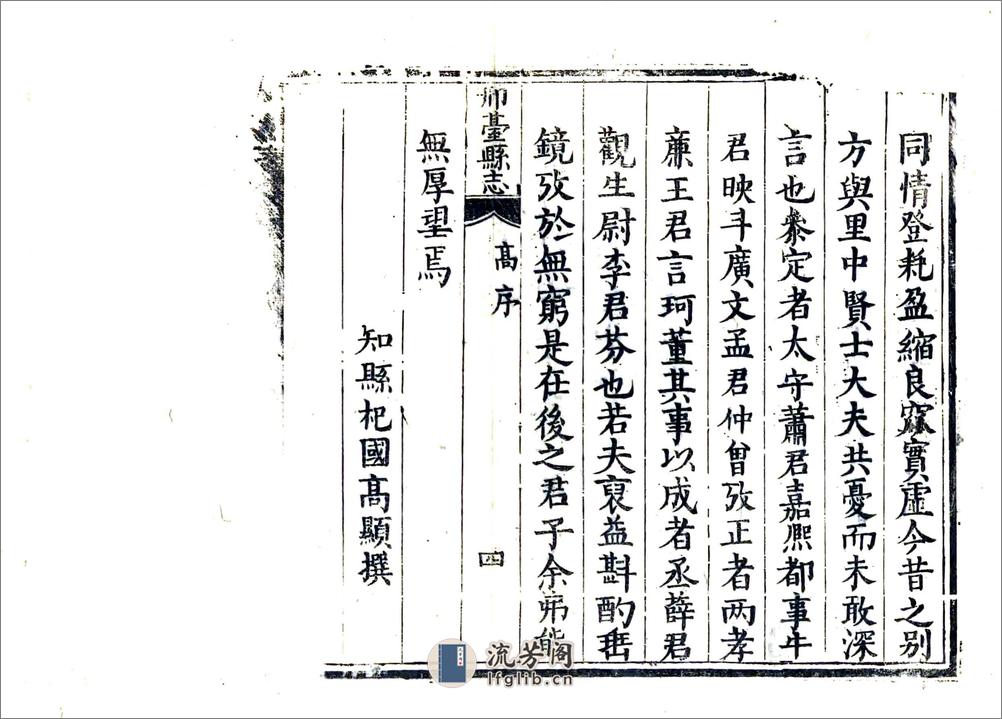 同情登耗盈縮良窳實虛今昔之别
方與里中賢士大夫共憂而未敢深
言也叅定者太守蕭君嘉熈都事牛
君映斗廣文孟君仲曾攷正者两孝
亷王君言珂董其事以成者丞薛君
觀生尉李君芬也若夫裒益斟酌垂
鏡攷於無窮是在後之君子余弗能
邢臺縣志
高序
四
無厚望焉
知縣杞國高顯撰
流芳阁
lfglib.cn